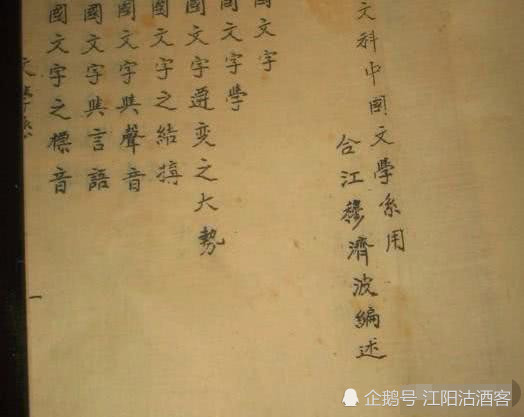 文科中國文學系用
合江穆濟波編述
國文字
國文字學
國文字遷变之大勢
國文字之結搆
國文字與聲音
國文字與言語
國文字之標音
一
企鹅号 江阳沽酒客